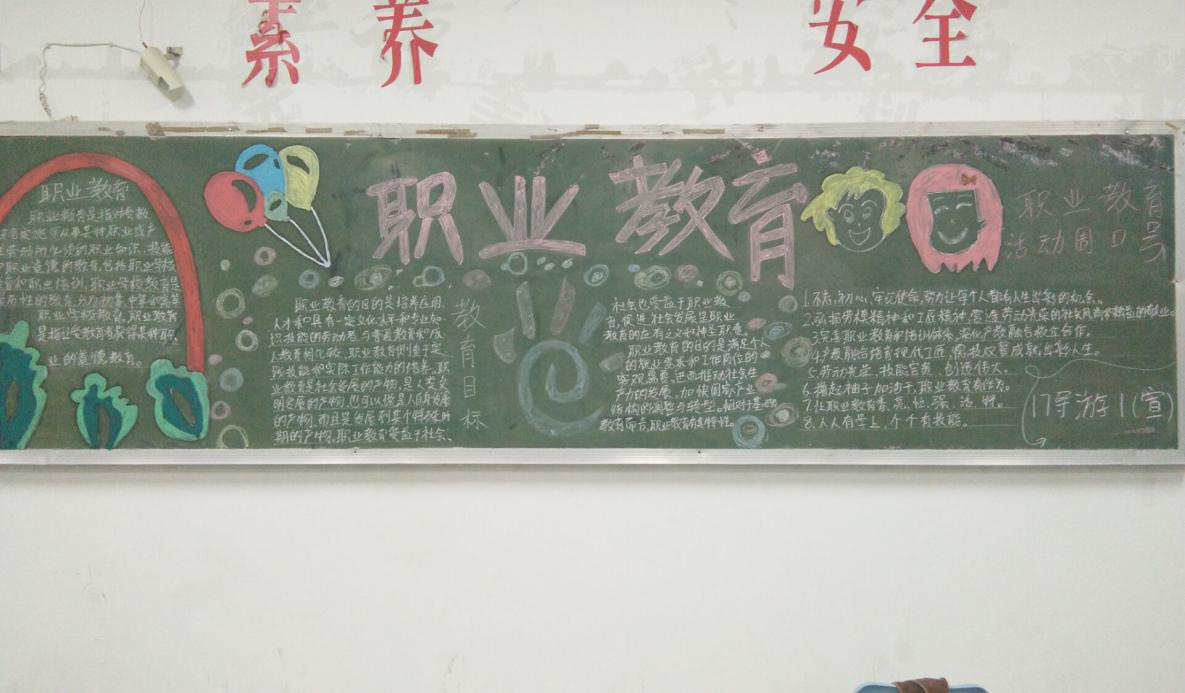 素养 安全
职业教育
职业教育是指对受教
职业道德的教育,包括职业学校
育和职业培训,职业学校教育是
职业学校教育,职业教育
是指让受教育者获得某种职
业的道德教育。
职业教育
职业教育的目的是培养应用
人才和具有一定文化水平和专业知
识技能的劳动者,与普通教育和成
人教育相比较,职业教育侧重于实
践技能和实际工作能力的培养。职
业教育是社会发展的产物,是人类文
明发展的产物,也可以说是人自身发展
的产物,而且是发展到某个特殊时
期的产物,职业教育受益于社会、
教育目标
社会也受益于职业教
育,促进社会发展是职业
教育的应有之义和神圣职责。
职业教育的目的是满足个人
的就业需求和工作岗位的
客观需要,进而推动社会生
产力的发展,加快国家产业
结构的调整与转型。相对于基础
教育而言,职业教育有其特性。
职业教育
活动周口号
1.不忘初心,牢记使命,努力让每个人都有人生出彩的机会。
2.弘扬劳模精神和工匠精神,营造劳动光荣的社会风尚和精益的敬业。
3.完善职业教育和培训体系,深化产教融合校企合作。
4.产教融合培育现代工匠,德技双馨成就出彩人生。
5.劳动光荣、技能宝贵、创造伟大。
6.撸起袖子加油干,职业教育有作为。
7.让职业教育香、亮、忙、强、活、特。
8.人人有学上,个个有技能。
17导游1(宣)